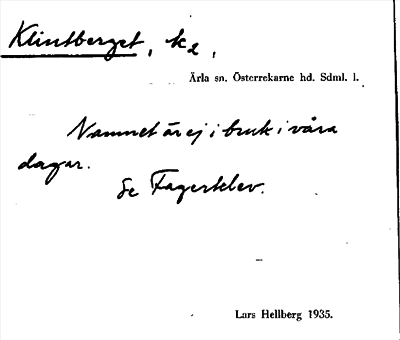 Klintberget, k2,
Ärla sn. Österrekarne hd. Sdml. l.
Namnet är ej i bruk i våra
dagar.
Se Fagerklev.
Lars Hellberg 1935.